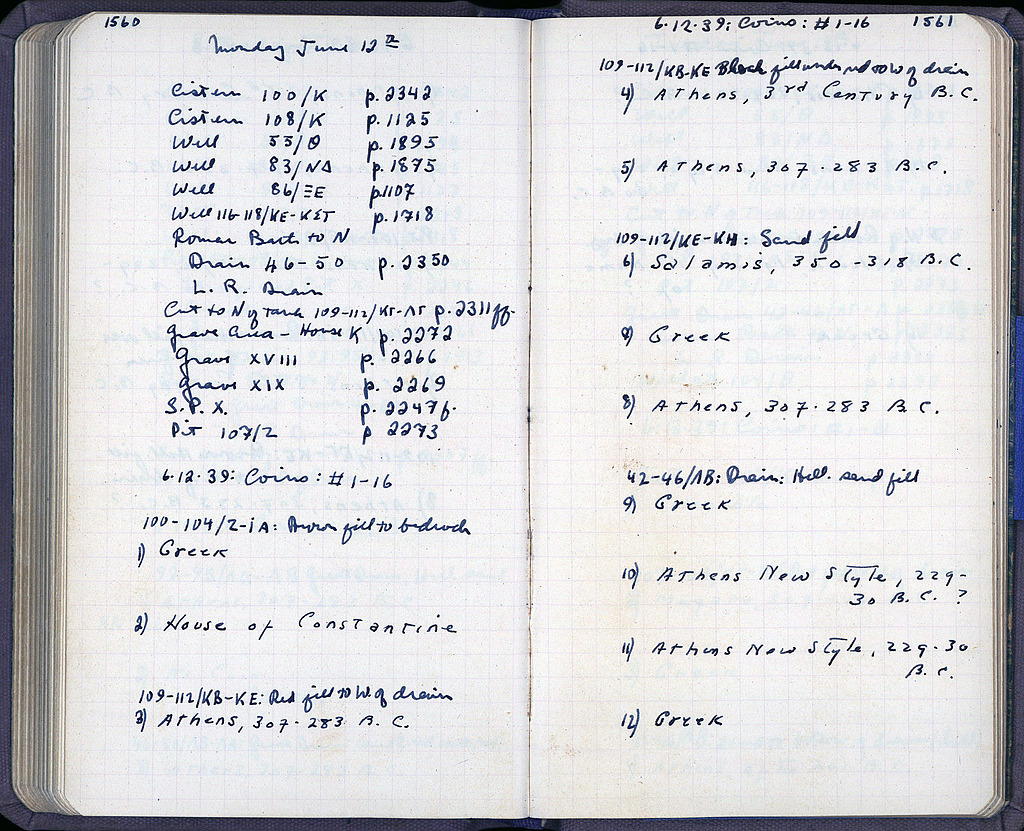 1560
Monday June 12th
Cistern 100/K p. 2342
Cistern 108/K p. 1125
Well 55/Θ p. 1895
Well 83/ΝΔ p. 1875
Well 86/ΞΕ p. 1107
Well 116-118/ΚΕ-ΚΣΤ p. 1718
Roman Bath to N
Drain 46-50 p. 2350
L. R. Drain
Cut to N of Tank 109-112/ p. 2311 ff.
Grave Area - House K p. 2272
Grave XVIII p. 2266
Grave XIX p. 2269
S.P. X. p. 2247f.
Pit 107/Z p 2273
6.12.39: Coins: #1-16
100-104/Z-ΙΑ: Brown fill to bedrock
1) Greek
2) House of Constantine
109-112/ΚΒ-ΚΕ: Red fill to W. of drain
3) Athens, 307-283 B.C.
6.12.39: Coins: #1-16 1561
109-112/ΚΒ-ΚΕ Black fill under red to W of drain
4) Athens, 3rd Century B.C.
5) Athens, 307-283 B.C.
109-112/ΚΕ-ΚΗ: Sand fill
6) Salamis, 350-318 B.C.
7) Greek
8) Athens, 307-283 B.C.
42-46/ΛΒ: Drain: Hell. sand fill
9) Greek
10) Athens New Style, 229-
30 B.C. ?
11) Athens New Style, 229-30
B.C.
12) Greek